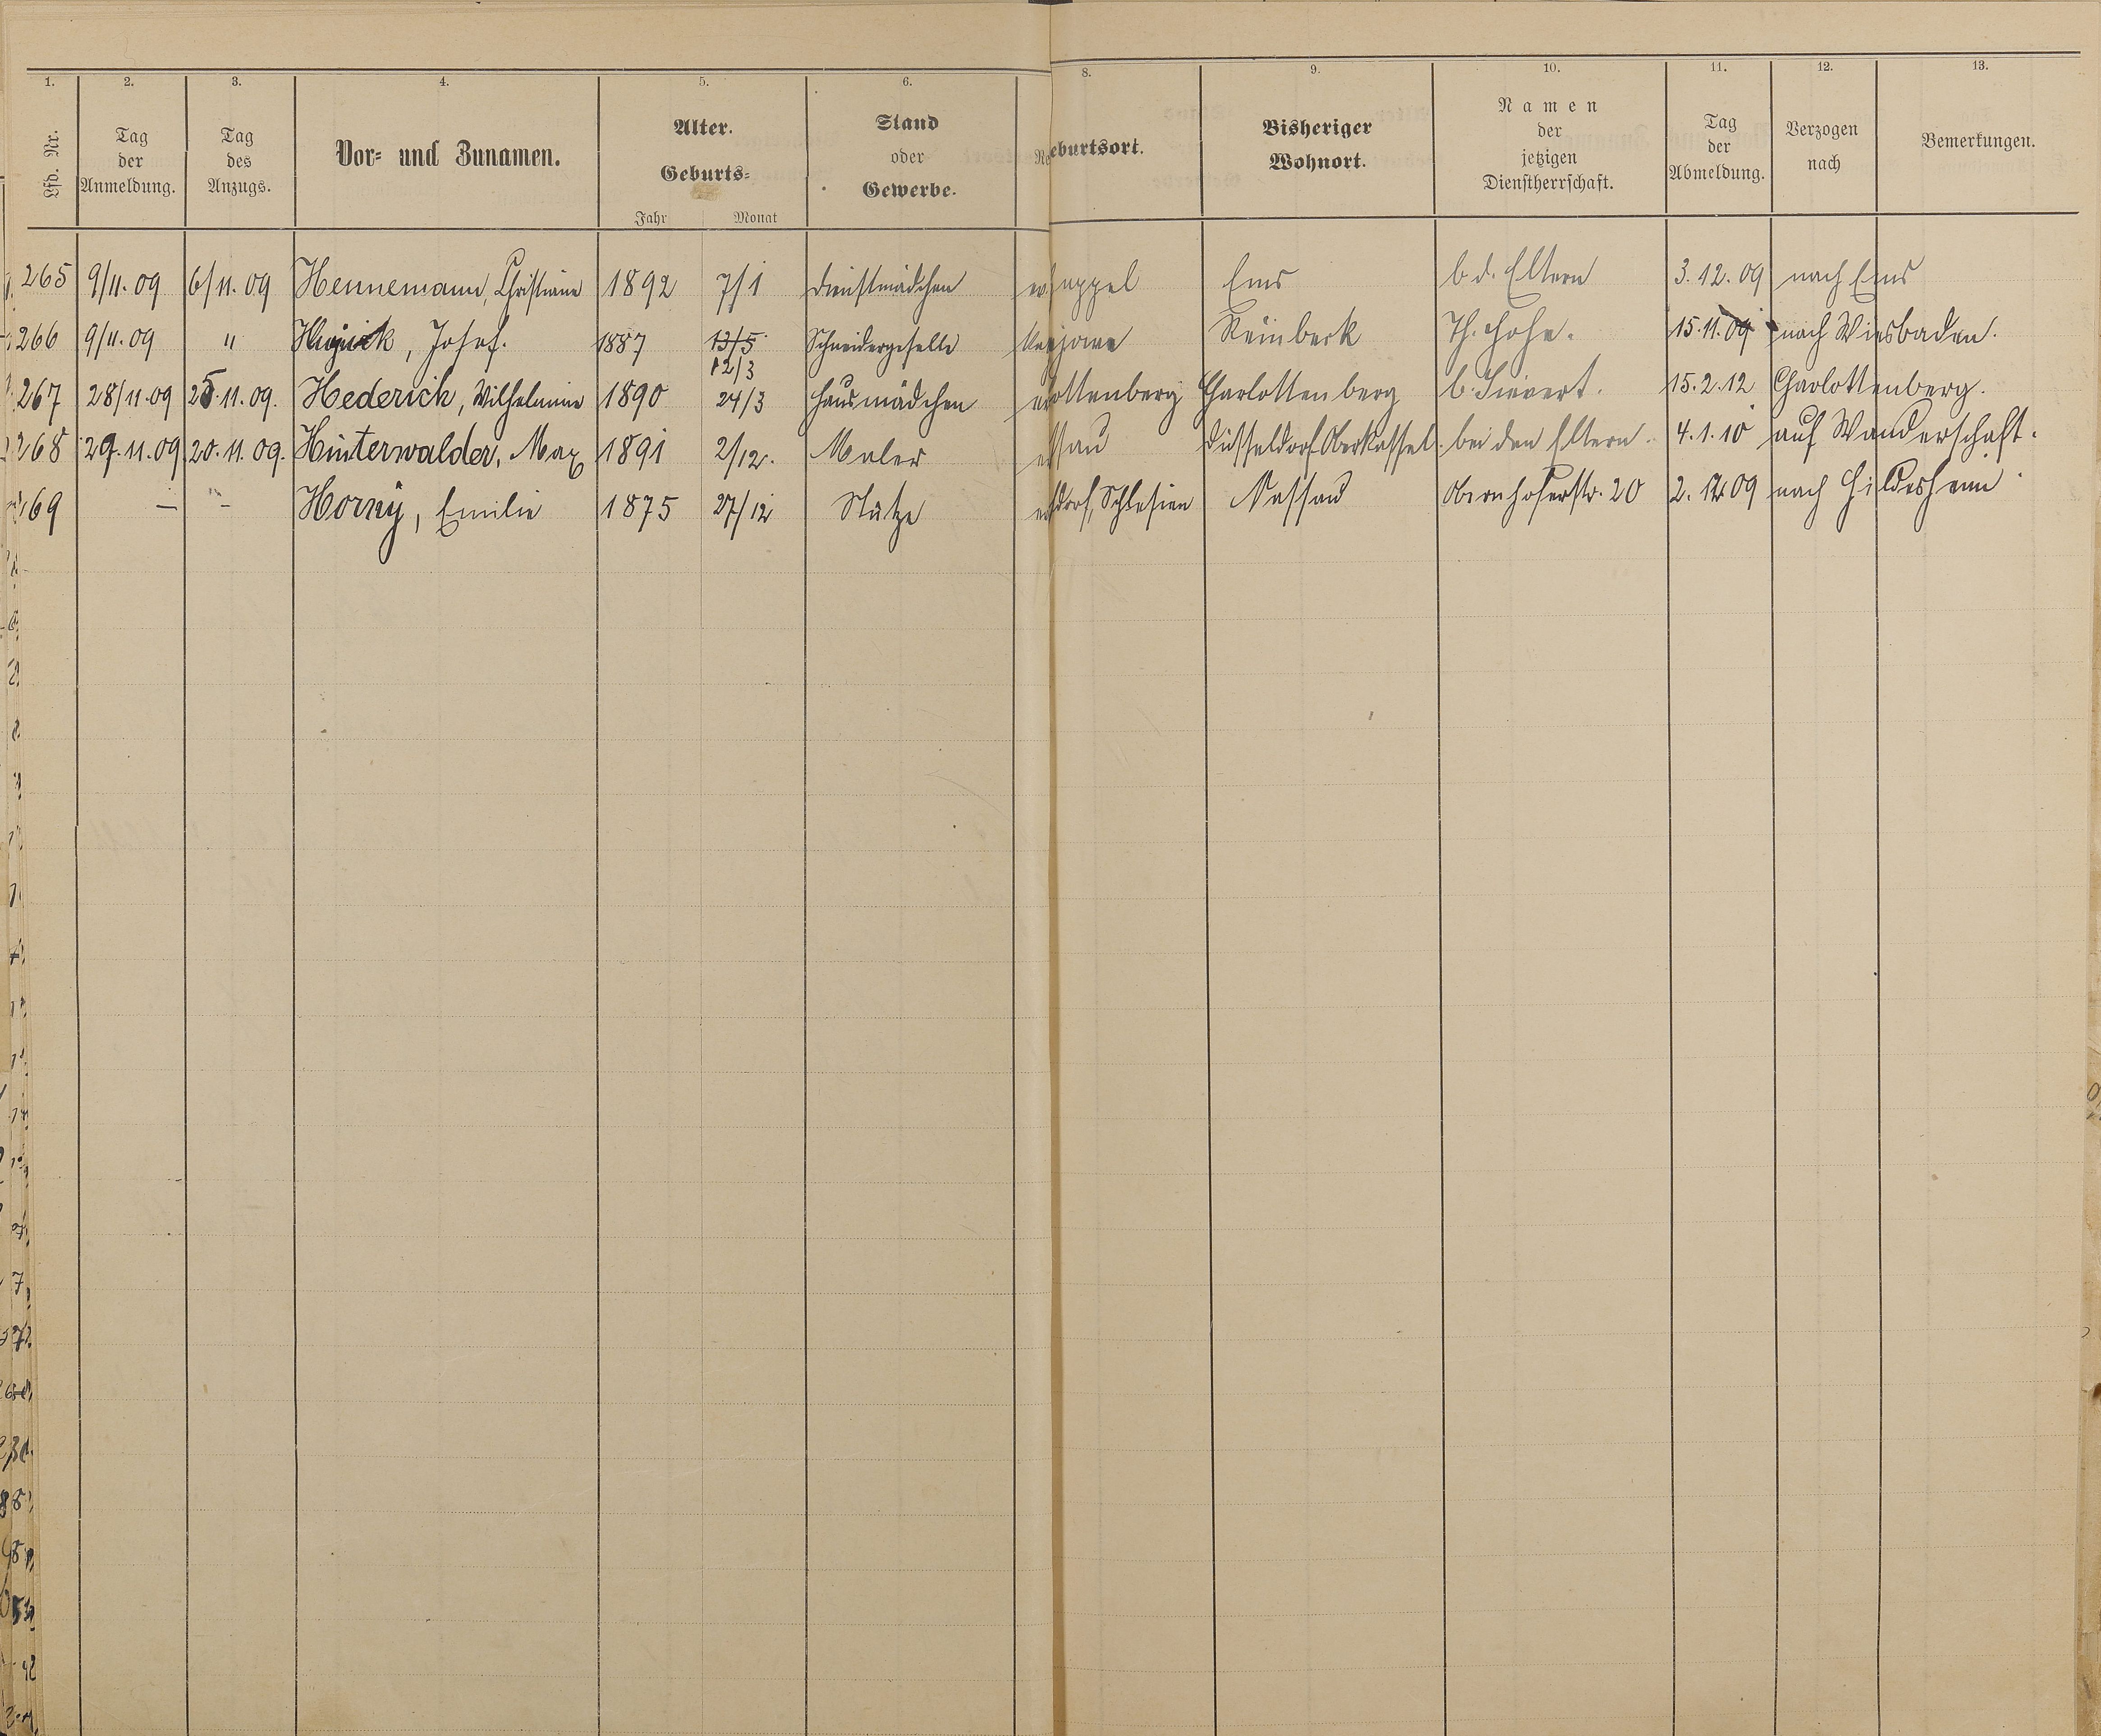 1. 2. 3. 4. 5. 6. 8. 9. 10. 11. 12. 13.
Lfd. Nr. Tag der Anmeldung. Tag des Anzugs. Vor- und Zunamen. Alter. Geburts- Jahr Monat Stand oder Gewerbe. eburtsort. Bisheriger Wohnort. Namen der jetzigen Dienstherrschaft. Tag der Abmeldung. Verzogen nach Bemerkungen.
265 9/11.09 6/11.09 Hennemann, Christiane 1892 7/1 Dienstmädchen appel Ems b. d. Eltern 3.12.09 nach Ems
266 9/11.09 " Josef. 1887 13/5 Schneidergeselle Reinbeck Th. Hohn. 15.11.09 nach Wiesbaden.
12/3
267 28/11.09 25.11.09. Hederich, Wilhelmine 1890 24/3 Hausmädchen ottenberg Charlottenberg b. Sievert. 15.2.12 Charlottenberg.
268 29.11.09 20.11.09. Hinterwalder, Max 1891 2/12. Maler sau Düsseldorf Oberkassel. bei den Eltern. 4.1.10 auf Wanderschaft.
69 — - Horny, Emilie 1875 27/12 Stütze dorf, Schlesien Nassau Obernhoferstr. 20 2. 09 nach Hildesheim.